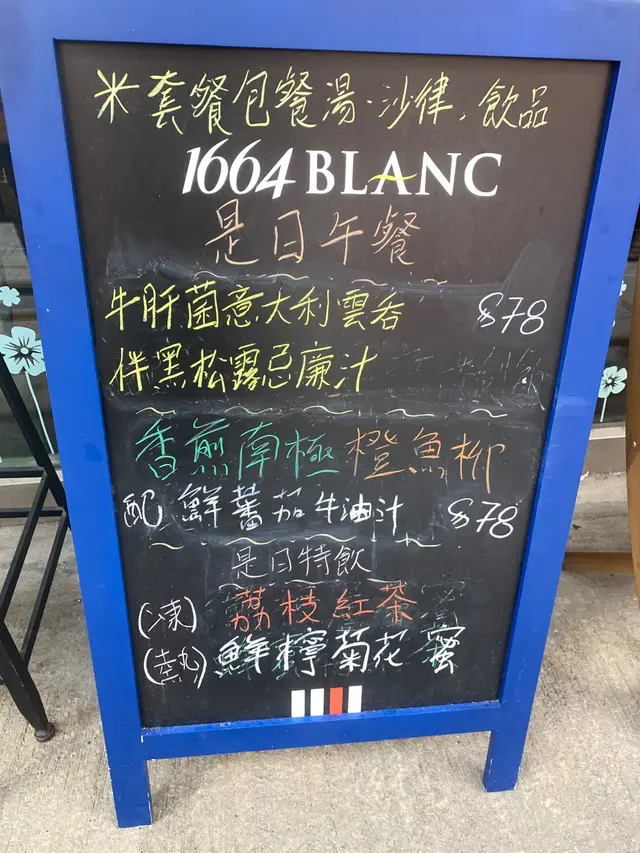 米套餐包餐湯·沙律.飲品
1664 BLANC
是日午餐
牛肝菌意大利雲吞 $78
伴黑松露忌廉汁
香煎南極橙魚柳
配鮮蕃茄牛油汁 $78
是日特飲
(凍) 荔枝紅茶
(熱) 鮮檸菊花蜜